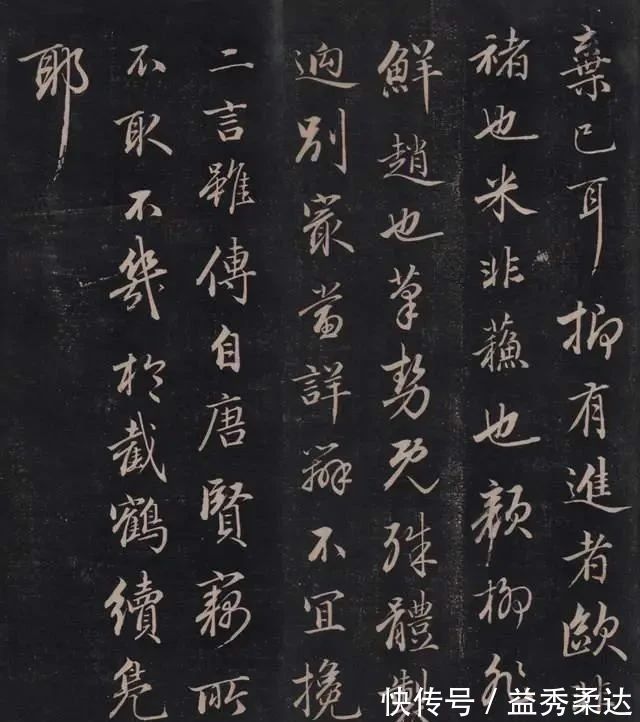 棄已耳抑有進者歐非
褚也米非蘓也顏柳
鮮趙也筆勢既殊體製
迥別最當詳辯不宜攙
二言雖傳自唐賢竊所
不取不幾於截鶴續鳧
耶
快传号/益秀柔达